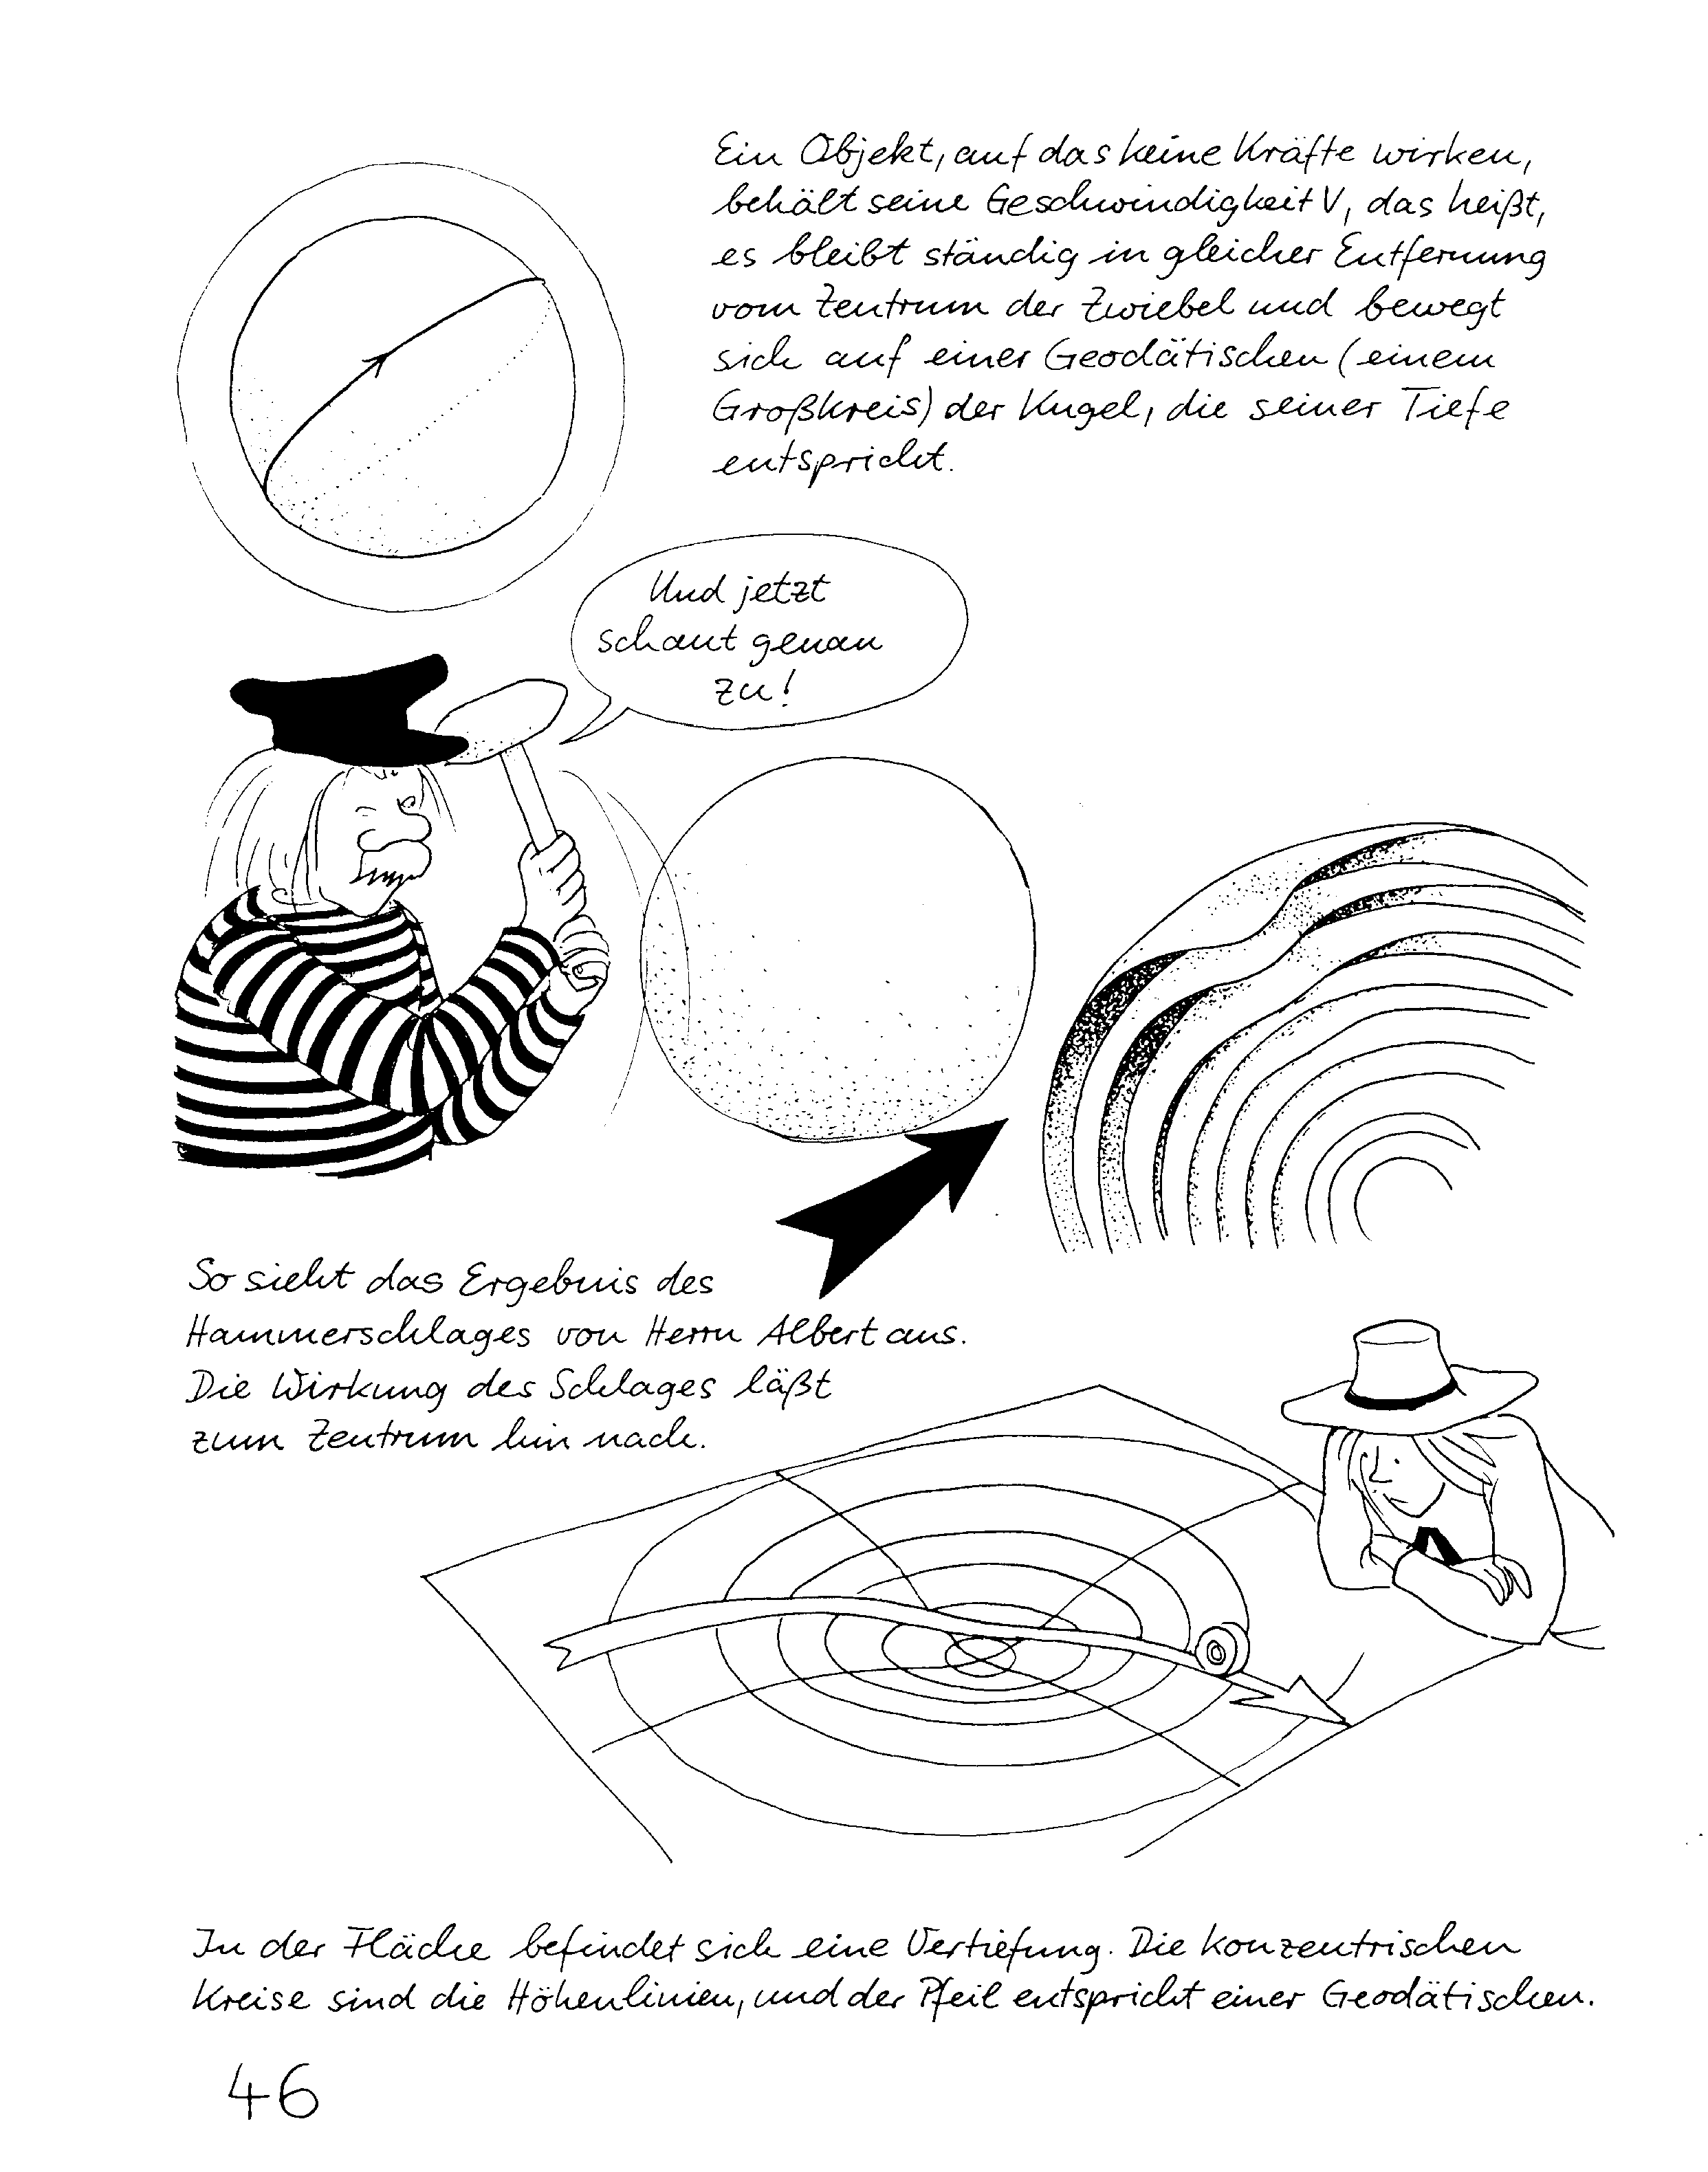 Ein Objekt, auf das keine Kräfte wirken,
behält seine Geschwindigkeit V, das heißt,
es bleibt ständig in gleicher Entfernung
vom Zentrum der Zwiebel und bewegt
sich auf einer Geodätischen (einem
Großkreis) der Kugel, die seiner Tiefe
entspricht.
Und jetzt
schaut genau
zu!
So sieht das Ergebnis des
Hammerschlages von Herrn Albert aus.
Die Wirkung des Schlages läßt
zum Zentrum hin nach.
In der Fläche befindet sich eine Vertiefung. Die konzentrischen
Kreise sind die Höhenlinien, und der Pfeil entspricht einer Geodätischen.
46